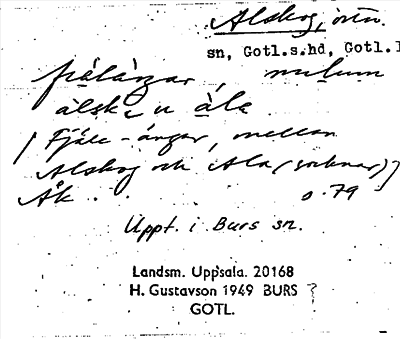 Alskog, östra
sn, Gotl.s.hd, Gotl.l
fiälängar, mulum
älsk u äla
/ Fjäle-ängar, mellan
Alskog och Ala (socknar)]
Åk. . s. 79
Uppt. i Burs sn.
Landsm. Uppsala. 20168
H. Gustavson 1949 BURS ?
GOTL.